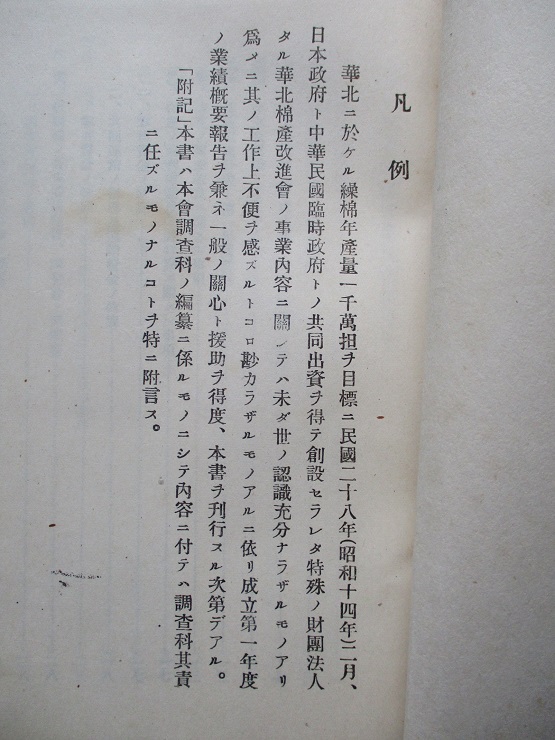 凡例
華北ニ於ケル繰棉年產量一千萬担ヲ目標ニ民國二十八年(昭和十四年)二月、
日本政府ト中華民國臨時政府トノ共同出資ヲ得テ創設セラレタ特殊ノ財團法人
タル華北棉產改進會ノ事業內容ニ關シテハ未ダ世ノ認識充分ナラザルモノアリ
爲メニ其ノ工作上不便ヲ感ズルトコロ尠カラザルモノアルニ依リ成立第一年度
ノ業績槪要報告ヲ兼ネ一般ノ關心ト援助ヲ得度、本書ヲ刊行スル次第デアル。
「附記」本書ハ本會調查科ノ編纂ニ係ルモノニシテ內容ニ付テハ調查科其責
ニ任ズルモノナルコトヲ特ニ附言ス。